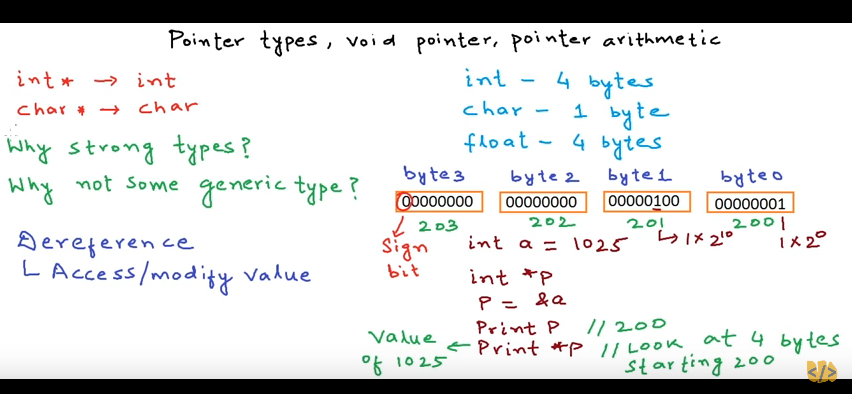 Pointer types, void pointer, pointer arithmetic
int* → int
char* → char
Why strong types?
Why not some generic type?
Dereference
↳ Access/modify value
int - 4 bytes
char - 1 byte
float - 4 bytes
byte3 byte2 byte1 byte0
00000000 00000000 00000100 00000001
203 202 201 200
sign bit
↳ 1×2^10 1×2^0
int a = 1025
int *p
P = &a
Print P // 200
Print *p // Look at 4 bytes starting 200
Value of 1025 ←
</>